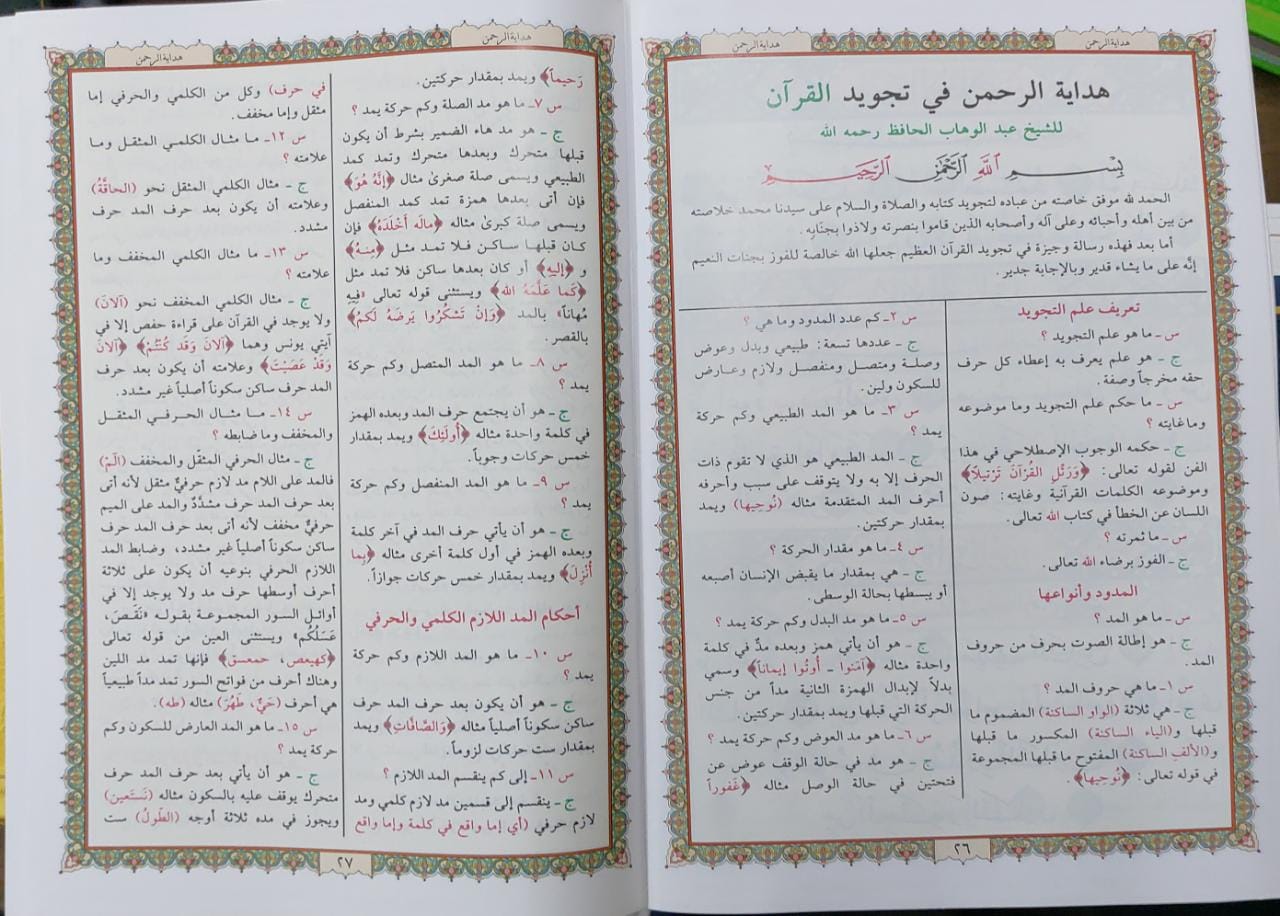 هداية الرحمن
هداية الرحمن
هداية الرحمن في تجويد القرآن
للشيخ عبد الوهاب الحافظ رحمه الله
بِسْمِ اللَّهِ الرَّحْمَٰنِ الرَّحِيمِ
الحمد لله موفق خاصته من عباده لتجويد كتابه والصلاة والسلام على سيدنا محمد خلاصته
من بين أهله وأحبائه وعلى آله وأصحابه الذين قاموا بنصرته ولاذوا بجنَابِه.
أما بعد فهذه رسالة وجيزة في تجويد القرآن العظيم جعلها الله خالصة للفوز بجنات النعيم
إنَّه على ما يشاء قدير وبالإجابة جدير.
تعريف علم التجويد
س ـ ما هو علم التجويد ؟
ج ـ هو علم يعرف به إعطاء كل حرف
حقه مخرجاً وصفة.
س ـ ما حكم علم التجويد وما موضوعه
وما غايته ؟
ج ـ حكمه الوجوب الإصطلاحي في هذا
الفن لقوله تعالى: ﴿وَرَتِّلِ القُرْآنَ تَرْتيلاً﴾
وموضوعه الكلمات القرآنية وغايته: صون
اللسان عن الخطأ في كتاب الله تعالى.
س ـ ما ثمرته ؟
ج ـ الفوز برضاء الله تعالى.
المدود وأنواعها
س ـ ما هو المد ؟
ج ـ هو إطالة الصوت بحرف من حروف
المد.
س ١ـ ما هي حروف المد ؟
ج ـ هي ثلاثة (الواو الساكنة) المضموم ما
قبلها و(الياء الساكنة) المكسور ما قبلها
و(الألف الساكنة) المفتوح ما قبلها المجموعة
في قوله تعالى: ﴿نُوحِيها﴾.
س ٢ـ كم عدد المدود وما هي ؟
ج ـ عددها تسعة: طبيعي وبدل وعوض
وصلـة ومتصـل ومنفصـل ولازم وعـارض
للسكون ولين.
س ٣ـ ما هو المد الطبيعي وكم حركة
يمد ؟
ج ـ المد الطبيعي هو الذي لا تقوم ذات
الحرف إلا به ولا يتوقف على سبب وأحرفه
أحرف المد المتقدمة مثاله (نُوحِيها) ويمد
بمقدار حركتين.
س ٤ـ ما هو مقدار الحركة ؟
ج ـ هي بمقدار ما يقبض الإنسان أصبعه
أو يبسطها بحالة الوسطى.
س ٥ـ ما هو مد البدل وكم حركة يمد ؟
ج ـ هو أن يأتي همز وبعده مدٌّ في كلمة
واحدة مثاله ﴿آمَنوا ـ أُوتُوا إيماناً﴾ وسمي
بدلاً لإبدال الهمزة الثانية مداً من جنس
الحركة التي قبلها ويمد بمقدار حركتين.
س ٦ـ ما هو مد العوض وكم حركة يمد ؟
ج ـ هو مد في حالة الوقف عوض عن
فتحتين في حالة الوصل مثاله ﴿غَفُوراً
٢٦
هداية الرحمن
هداية الرحمن
رَحيماً﴾ ويمد بمقدار حركتين.
س ٧ـ ما هو مد الصلة وكم حركة يمد ؟
ج ـ هو مد هاء الضمير بشرط أن يكون
قبلها متحرك وبعدها متحرك وتمد كمد
الطبيعي ويسمى صلة صغرىٰ مثال ﴿إنَّهُ هُوَ﴾
فإن أتى بعدها همزة تمد كمد المنفصل
ويسمى صلة كبرىٰ مثاله ﴿مالَه أَخْلَدَهُ﴾ فإن
كان قبلها ساكـن فـلا تمد مثـل ﴿مِنهُ﴾
و ﴿إليهِ﴾ أو كان بعدها ساكن فلا تمد مثل
﴿كَما عَلَّمَهُ الله﴾ ويستثنى قوله تعالى «فِيهِ
مُهاناً» بالمد ﴿وَإِنْ تَشْكُروا يَرضَهُ لَكمْ﴾
بالقصر.
س ٨ـ ما هو المد المتصل وكم حركة
يمد ؟
ج ـ هو أن يجتمع حرف المد وبعده الهمز
في كلمة واحدة مثاله ﴿أُولَئِكَ﴾ ويمد بمقدار
خمس حركات وجوباً.
س ٩ـ ما هو المد المنفصل وكم حركة
يمد ؟
ج ـ هو أن يأتي حرف المد في آخر كلمة
وبعده الهمز في أول كلمة أخرى مثاله ﴿بِما
أُنْزِلَ﴾ ويمد بمقدار خمس حركات جوازاً.
أحكام المد اللازم الكلمي والحرفي
س ١٠ـ ما هو المد اللازم وكم حركة
يمد ؟
ج ـ هو أن يكون بعد حرف المد حرف
ساكن سكوناً أصلياً مثاله ﴿وَالصَّافَّاتِ﴾ ويمد
بمقدار ست حركات لزوماً.
س ١١ـ إلى كم ينقسم المد اللازم ؟
ج ـ ينقسم إلى قسمين مد لازم كلمي ومد
لازم حرفي (أي إما واقع في كلمة وإما واقع
في حرف) وكل من الكلمي والحرفي إما
مثقل وإما مخفف.
س ١٢ـ ما مثال الكلمي المثقل وما
علامته ؟
ج ـ مثال الكلمي المثقل نحو (الحاقَّةُ)
وعلامته أن يكون بعد حرف المد حرف
مشدد.
س ١٣ـ ما مثال الكلمي المخفف وما
علامته ؟
ج ـ مثال الكلمي المخفف نحو (آلآنَ)
ولا يوجد في القرآن على قراءة حفص إلا في
آيتي يونس وهما ﴿آلآنَ وَقَد كُنتُمْ﴾ ﴿آلآنَ
وَقَدْ عَصَيْتَ﴾ وعلامته أن يكون بعد حرف
المد حرف ساكن سكوناً أصلياً غير مشدد.
س ١٤ـ مـا مثـال الحـرفـي المثقـل
والمخفف وما ضابطه ؟
ج ـ مثال الحرفي المثقّل والمخفف (الَمّ)
فالمد على اللام مد لازم حرفيٌّ مثقل لأنه أتى
بعد حرف المد حرف مشدَّدٌ والمد على الميم
حرفيٌّ مخفف لأنه أتى بعد حرف المد حرف
ساكن سكوناً أصلياً غير مشدد، وضابط المد
اللازم الحرفي بنوعيه أن يكون على ثلاثة
أحرف أوسطها حرف مد ولا يوجد إلا في
أوائـل السـور المجمـوعـة بقـولـه «نَقَـصَ،
عَسَلُكُم» ويستثنى العين من قوله تعالى
﴿كهيعص، حمعسق﴾ فإنها تمد مد اللين
وهناك أحرف من فواتح السور تمد مداً طبيعياً
هي أحرف (حَيٌّ، طَهُرَ) مثاله (طه).
س ١٥ـ ما هو المد العارض للسكون وكم
حركة يمد ؟
ج ـ هو أن يأتي بعد حرف المد حرف
متحرك يوقف عليه بالسكون مثاله (نَستَعين)
ويجوز في مده ثلاثة أوجه (الطولُ) ست
٢٧